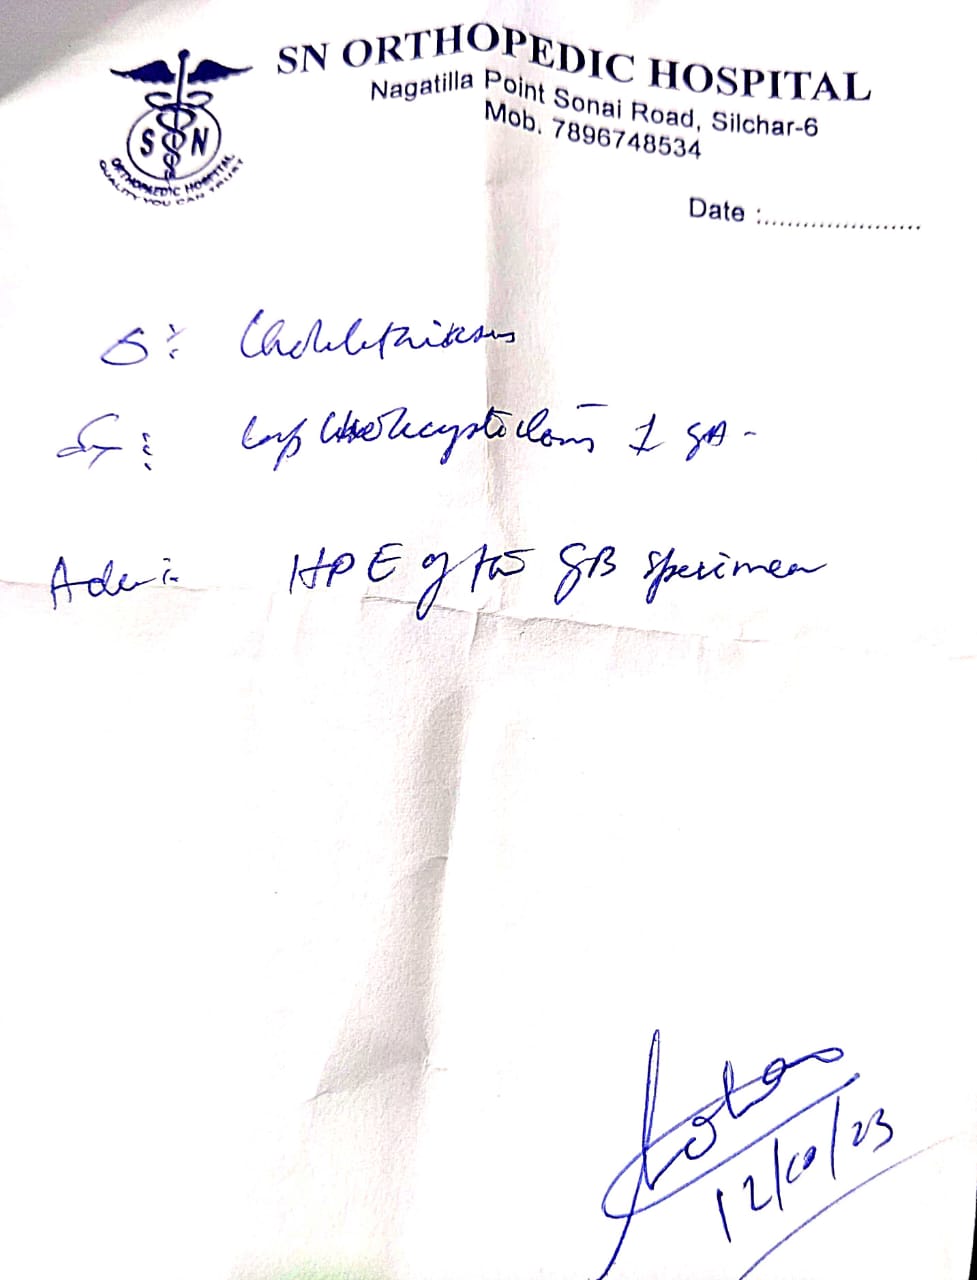 SN ORTHOPEDIC HOSPITAL
Nagatilla Point Sonai Road, Silchar-6
Mob. 7896748534
S N
ORTHOPAEDIC HOSPITAL
QUALITY YOU CAN TRUST
Date :.....................
Δ:
Lap Cholecystectomy GA -
Adv:- HPE of the GB specimen
12/10/23